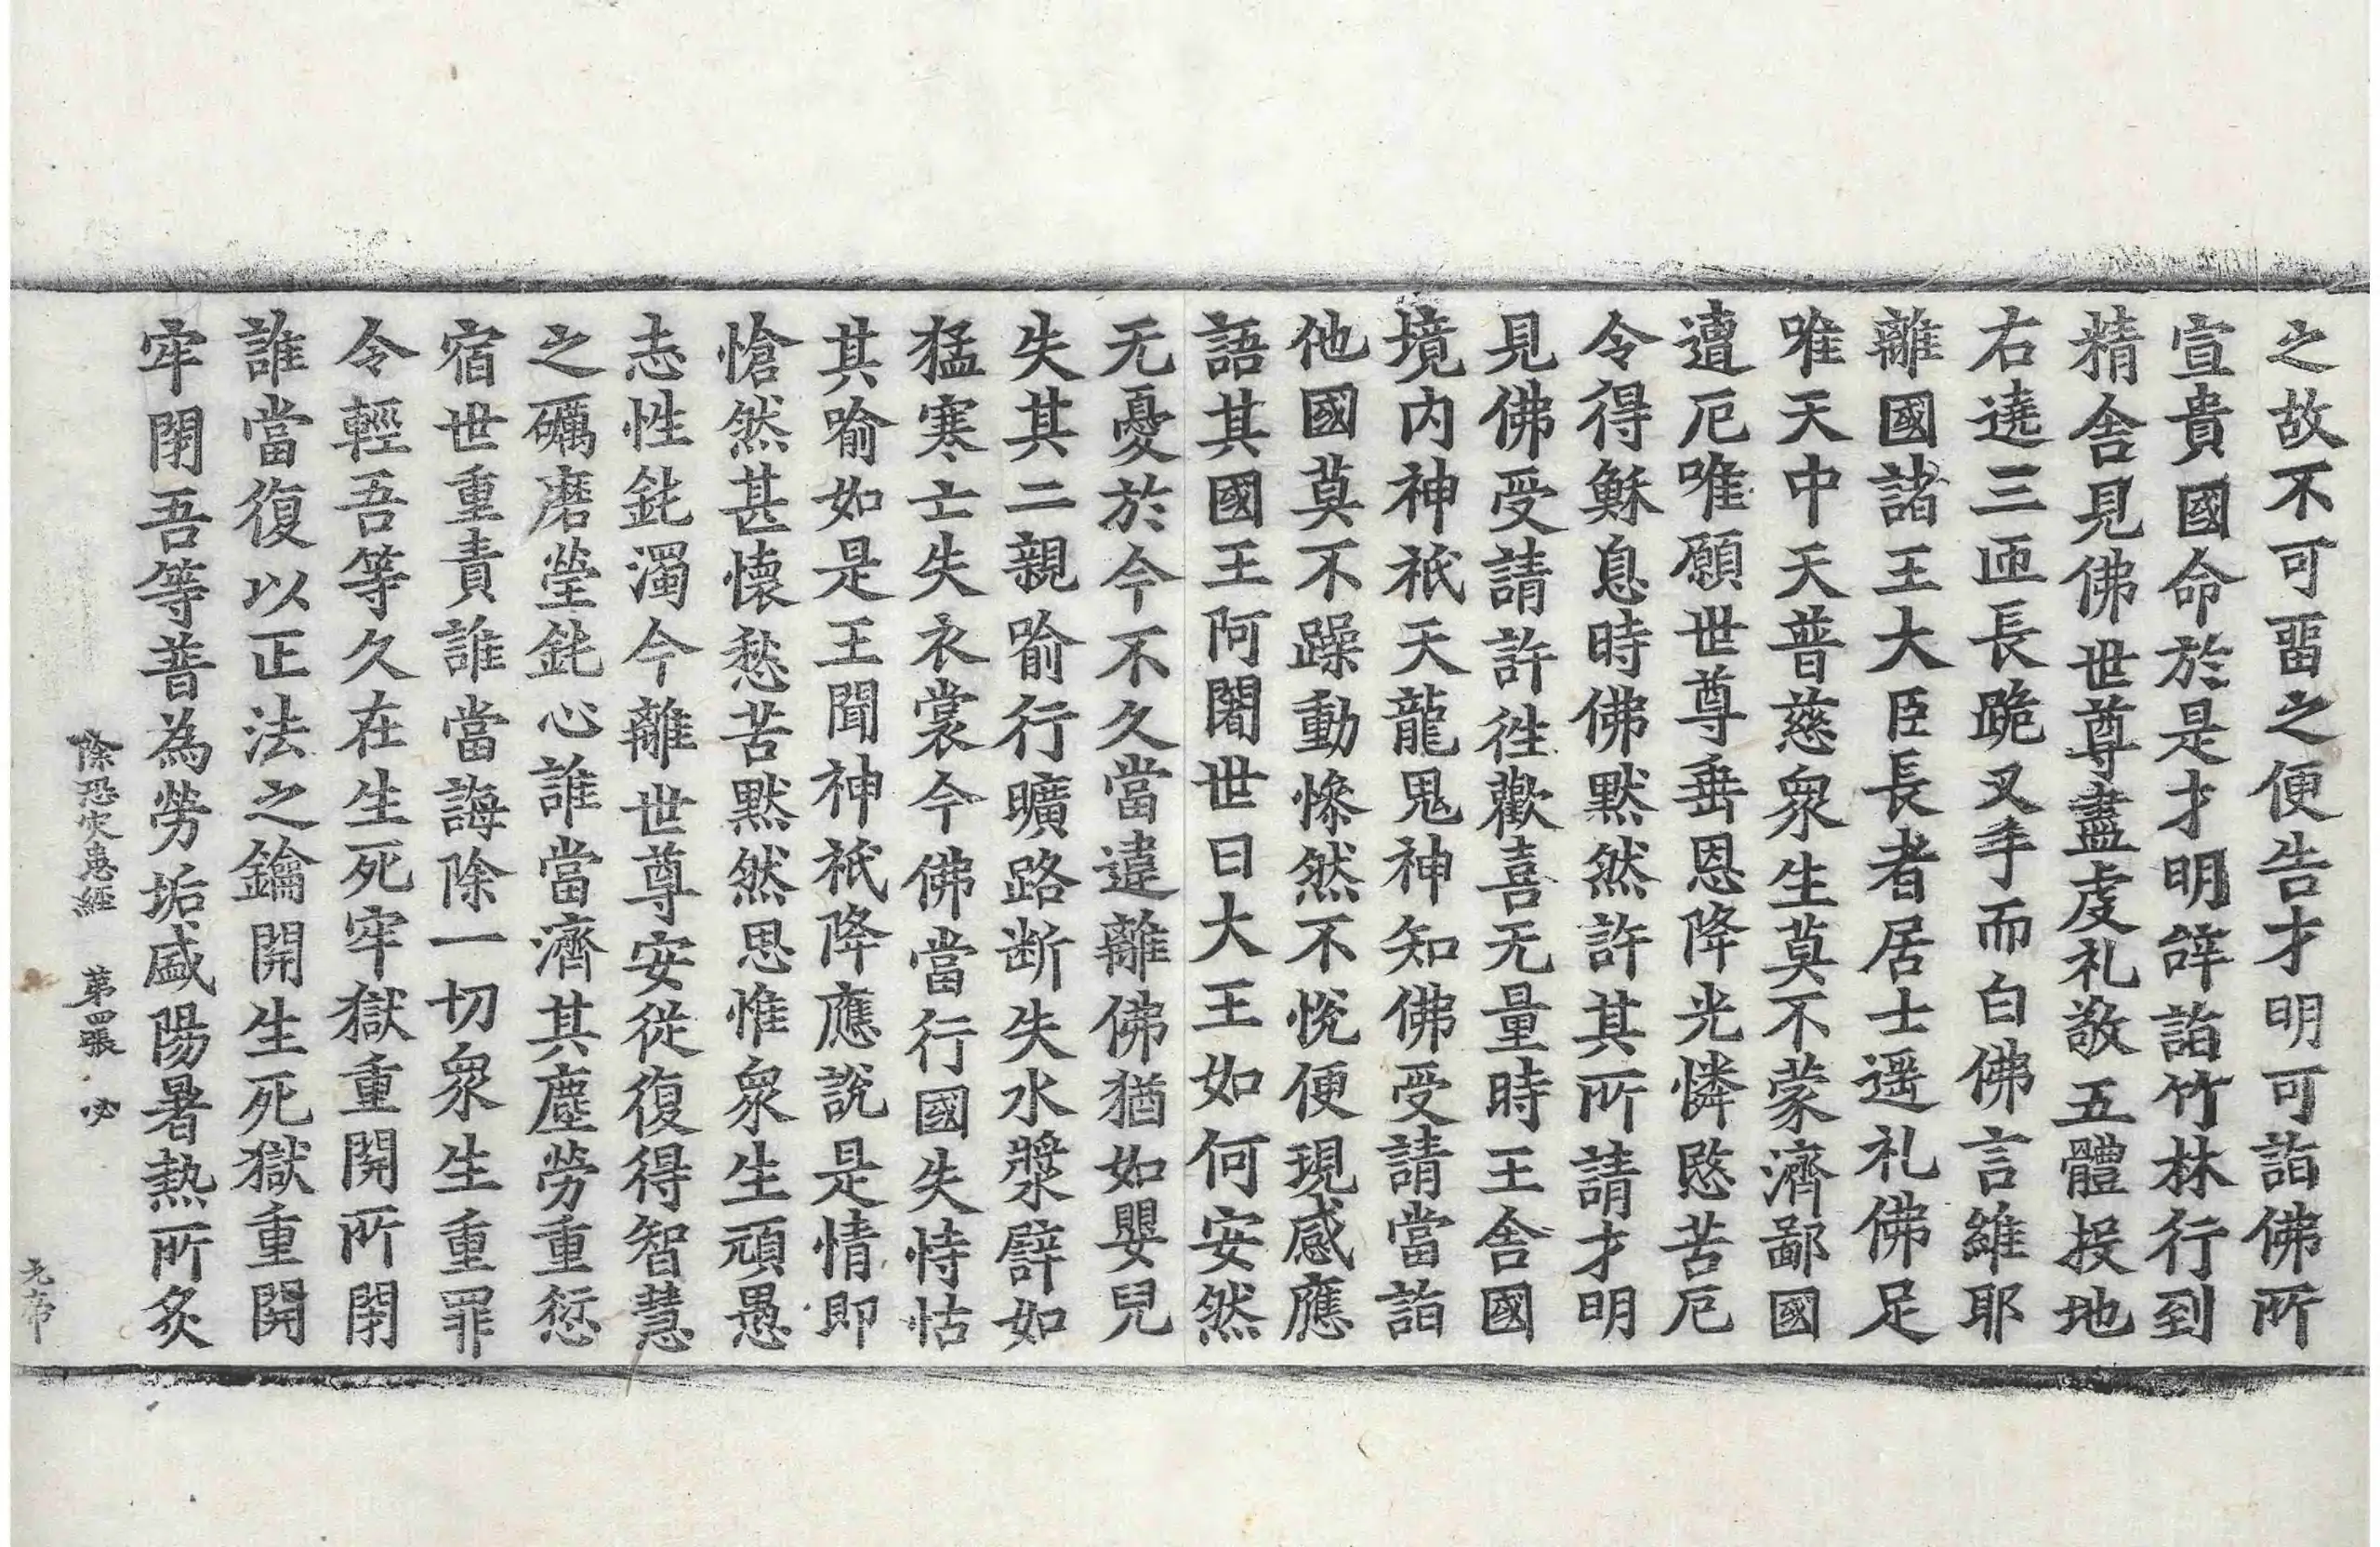 之故不可畱之便告才明可詣佛所
宣貴國命於是才明辝詣竹林行到
精舍見佛世尊盡虔礼敬五體投地
右遶三匝長跪叉手而白佛言維耶
離國諸王大臣長者居士遥礼佛足
唯天中天普慈衆生莫不蒙濟鄙國
遭厄唯願世尊垂恩降光憐愍苦厄
令得穌息時佛黙然許其所請才明
見佛受請許徃歡喜无量時王舍國
境内神祇天龍鬼神知佛受請當詣
他國莫不躁動慘然不恱便現感應
語其國王阿闍世曰大王如何安然
无憂於今不久當違離佛猶如嬰兒
失其二親喻行曠路断失水漿譬如
猛寒士失衣裳今佛當行國失恃怙
其喻如是王聞神祇降應說是情即
愴然甚懷愁苦黙然思惟衆生頑愚
志性鈍濁今離世尊安從復得智慧
之礪磨瑩鈍心誰當濟其塵勞重愆
宿世重責誰當誨除一切衆生重罪
令輕吾等久在生死牢獄重關所閉
誰當復以正法之鑰開生死獄重關
牢閉吾等普為勞垢盛陽暑熱所炙
除恐灾患經 第四張 必
元帝